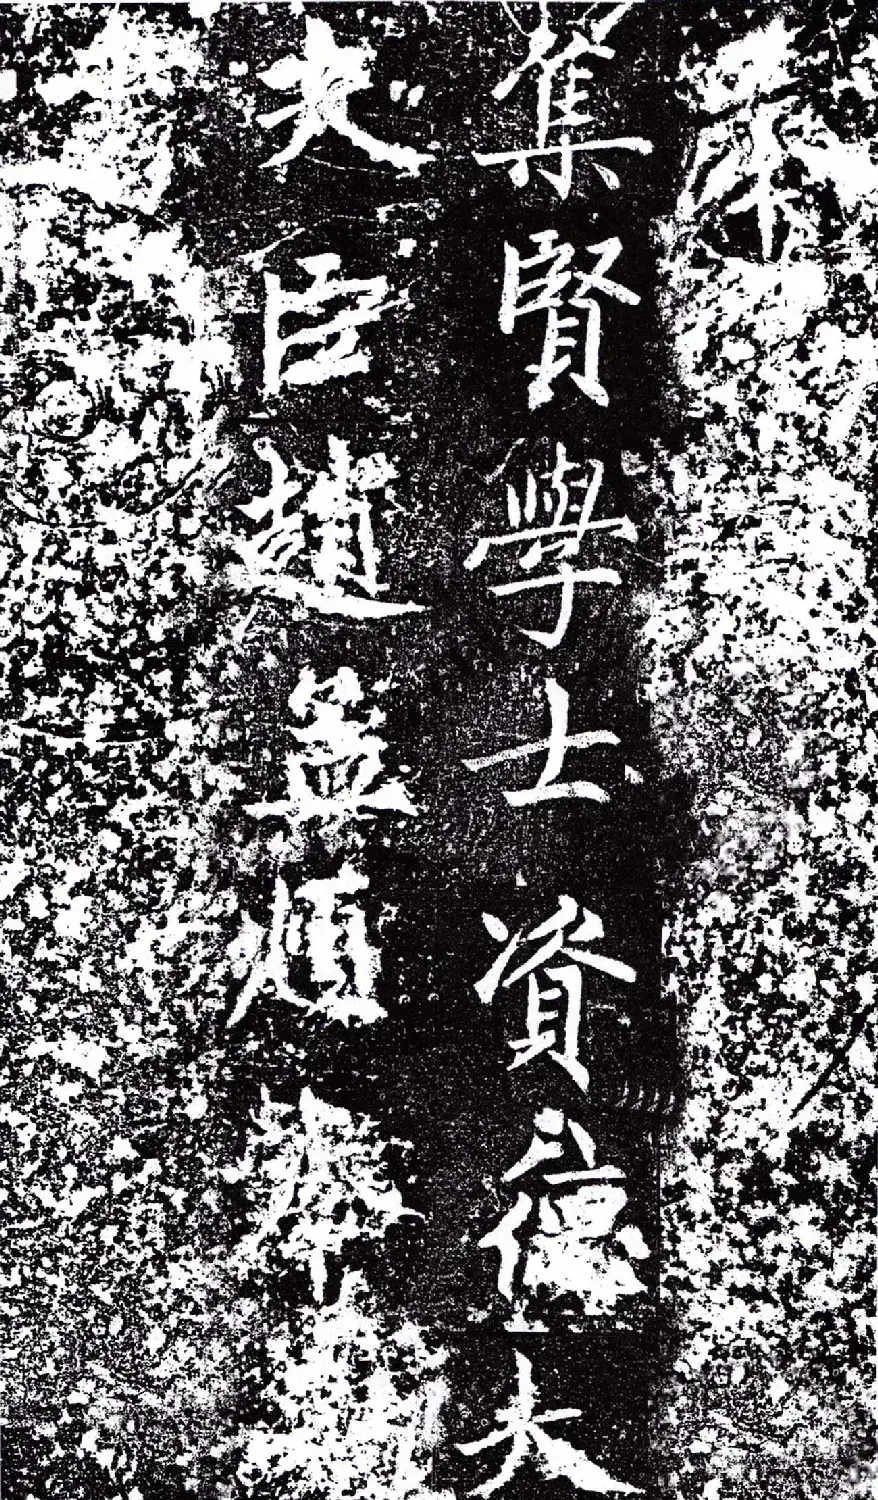 集賢學士資德大
夫臣趙孟頫奉
書